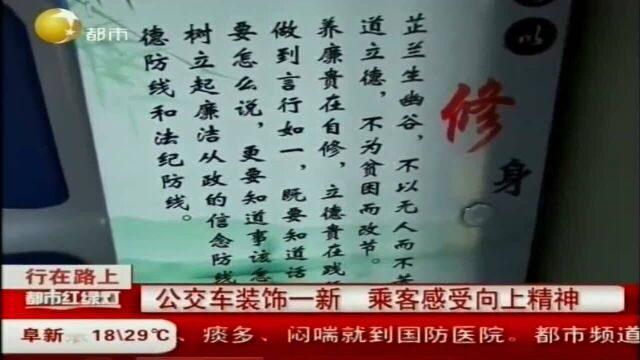 都市
以
修身
芷兰生幽谷，不以无人而不
道立德，不为贫困而改节。
养廉贵在自修，立德贵在践
做到言行如一，既要知道话
要怎么说，更要知道事该怎
树立起廉洁从政的信念防线
德防线和法纪防线。
行在路上
都市红绿灯
公交车装饰一新 乘客感受向上精神
阜新 18\29℃ 、痰多、闷喘就到国防医院。都市频道